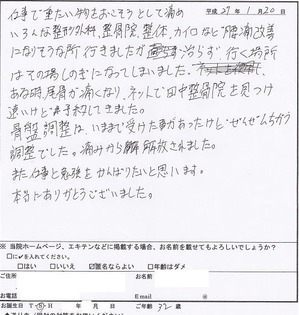 平成27年1月20日
仕事で重たい物をおこそうとして痛め
いろんな整形外科、整骨院、整体、カイロなど腰痛改善
になりそうな所行きましたが治らず行く場所
はその場しのぎになってしまいました。
ある時、尾骨が痛くなり、ネットで田中整骨院を見つけ
遠いけど予約してきました。
骨盤調整は、いままで受けた事があったけどぜんぜんちがう
調整でした。痛みから解放されました。
また仕事と勉強をがんばりたいと思います。
本当にありがとうございました。
※ 当院ホームページ、エキテンなどに掲載する場合、お名前を載せてもよろしいでしょうか?
□に✓を入れてください。
□はい □いいえ ☑匿名ならよい □年齢はダメ
ご住所 お名前
お電話 Email @
お誕生日 T S H 年 月 日 ご年齢 32 歳